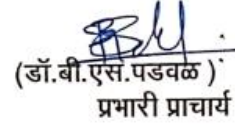 (डॉ.बी.एस.पडवळ )
प्रभारी प्राचार्य